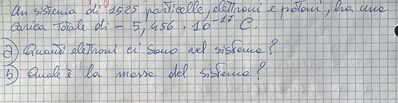 Un sistema di 1525 particelle, elettroni e protoni, ha una
carica totale di - 5,456 · 10⁻¹⁷ C.
a) Quanti elettroni ci sono nel sistema?
b) Quale è la massa del sistema?